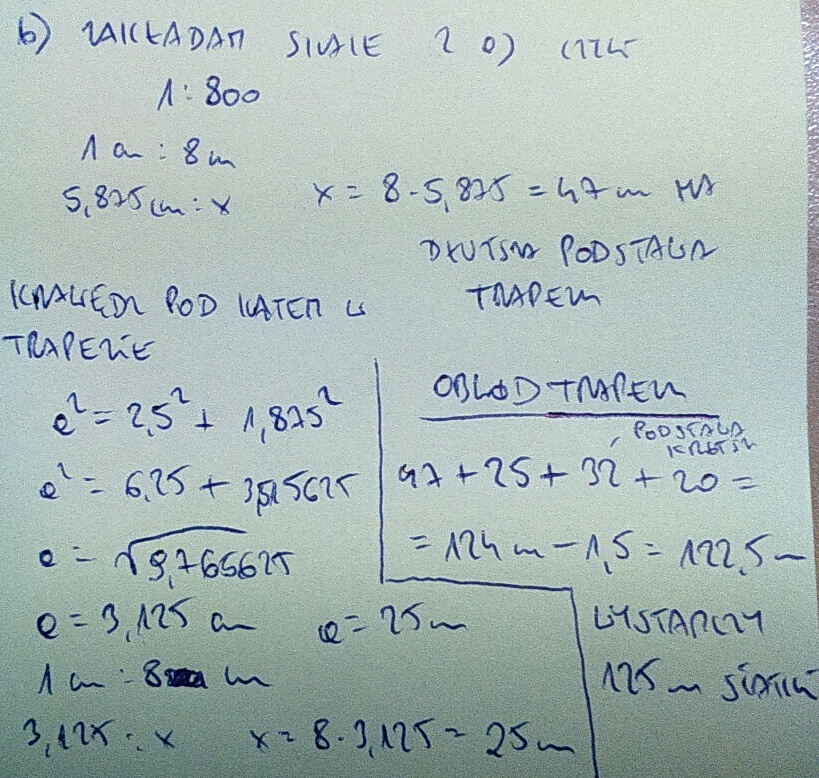 b) ZAKŁADAM SKALE Z a) CZYLI
1:800
1 cm : 8 m
5,875 cm : x x = 8 · 5,875 = 47 m MA
DŁUŻSZA PODSTAWA
TRAPEZU
KRAWĘDZ POD KATEM W
TRAPEZIE
e² = 2,5² + 1,875²
e² = 6,25 + 3,515625
e = √9,765625
e = 3,125 cm e = 25 m
1 cm : 8 m
3,125 : x x = 8 · 3,125 = 25 m
OBWÓD TRAPEZU
PODSTAWA
KRÓTSZA
47 + 25 + 32 + 20 =
= 124 m - 1,5 = 122,5 m
WYSTARCZY
125 m SIATKI